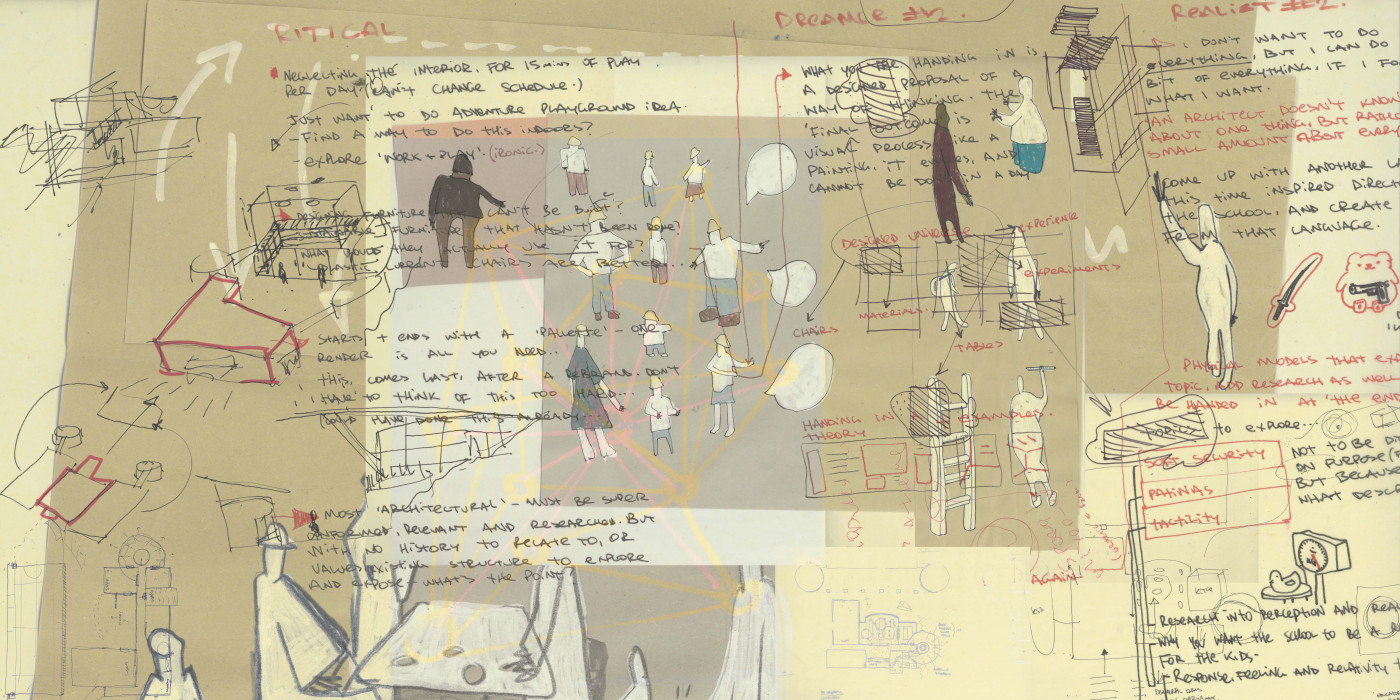 RITICAL
NEGLECTING THE INTERIOR, FOR 15 mins OF PLAY
PER DAY (CAN'T CHANGE SCHEDULE.)
JUST WANT TO DO ADVENTURE PLAYGROUND IDEA.
- FIND A WAY TO DO THIS INDOORS?
- EXPLORE 'WORK + PLAY'. (ironic)
DESIGNING FURNITURE CAN'T BE BUILT?
FURNITURE THAT HASN'T BEEN DONE?
WHAT WOULD THEY ACTUALLY USE IT FOR?
CHAIRS ARE BETTER...
STARTS + ENDS WITH A 'PALETTE' - ONE
RENDER IS ALL YOU NEED...
THIS COMES LAST, AFTER A DEBRAND DON'T
HAVE TO THINK OF THIS TOO HARD...
COULD HAVE DONE THIS ALREADY...
MOST 'ARCHITECTURAL' - MUST BE SUPER
INFORMED, RELEVANT AND RESEARCHED. BUT
WITH NO HISTORY TO RELATE TO, OR
VALUES EXISTING STRUCTURE TO EXPLORE
AND EXPOSE - WHAT'S THE POINT?
DREAMER #2.
WHAT YOU ARE HANDING IN IS
A DESIGNED PROPOSAL OF A
WAY OF THINKING. THE
'FINAL OUTCOME' IS A
VISUAL PROCESS LIKE A
PAINTING, IT EVOLVES, AND
CANNOT BE DONE IN A DAY
DESIGNED UNIVERSE
EXPERIENCE
EXPERIMENTS
MATERIALS
CHAIRS
TABLES
HANDING IN EXAMPLES.
THEORY
AGAIN
REALIST #2.
I DON'T WANT TO DO
EVERYTHING, BUT I CAN DO
BIT OF EVERYTHING, IF I FO
WHAT I WANT.
AN ARCHITECT DOESN'T KNOW
ABOUT ONE THING, BUT RATHE
SMALL AMOUNT ABOUT EVER
COME UP WITH ANOTHER L
THIS TIME INSPIRED DIREC
THE SCHOOL, AND CREATE
FROM THAT LANGUAGE.
PHYSICAL MODELS THAT EXP
TOPIC, AND RESEARCH AS WELL
BE HANDED IN AT THE END
TOPICS TO EXPLORE...
SOFT SECURITY
PATINAS
TACTILITY
NOT TO BE DI
ON PURPOSE (F
BUT BECAUSE
WHAT DESCR
RESEARCH INTO PERCEPTION AND REA
WHY YOU WANT THE SCHOOL TO BE A R
FOR THE KIDS.
RESPONSE, FEELING AND RELATIVITY T